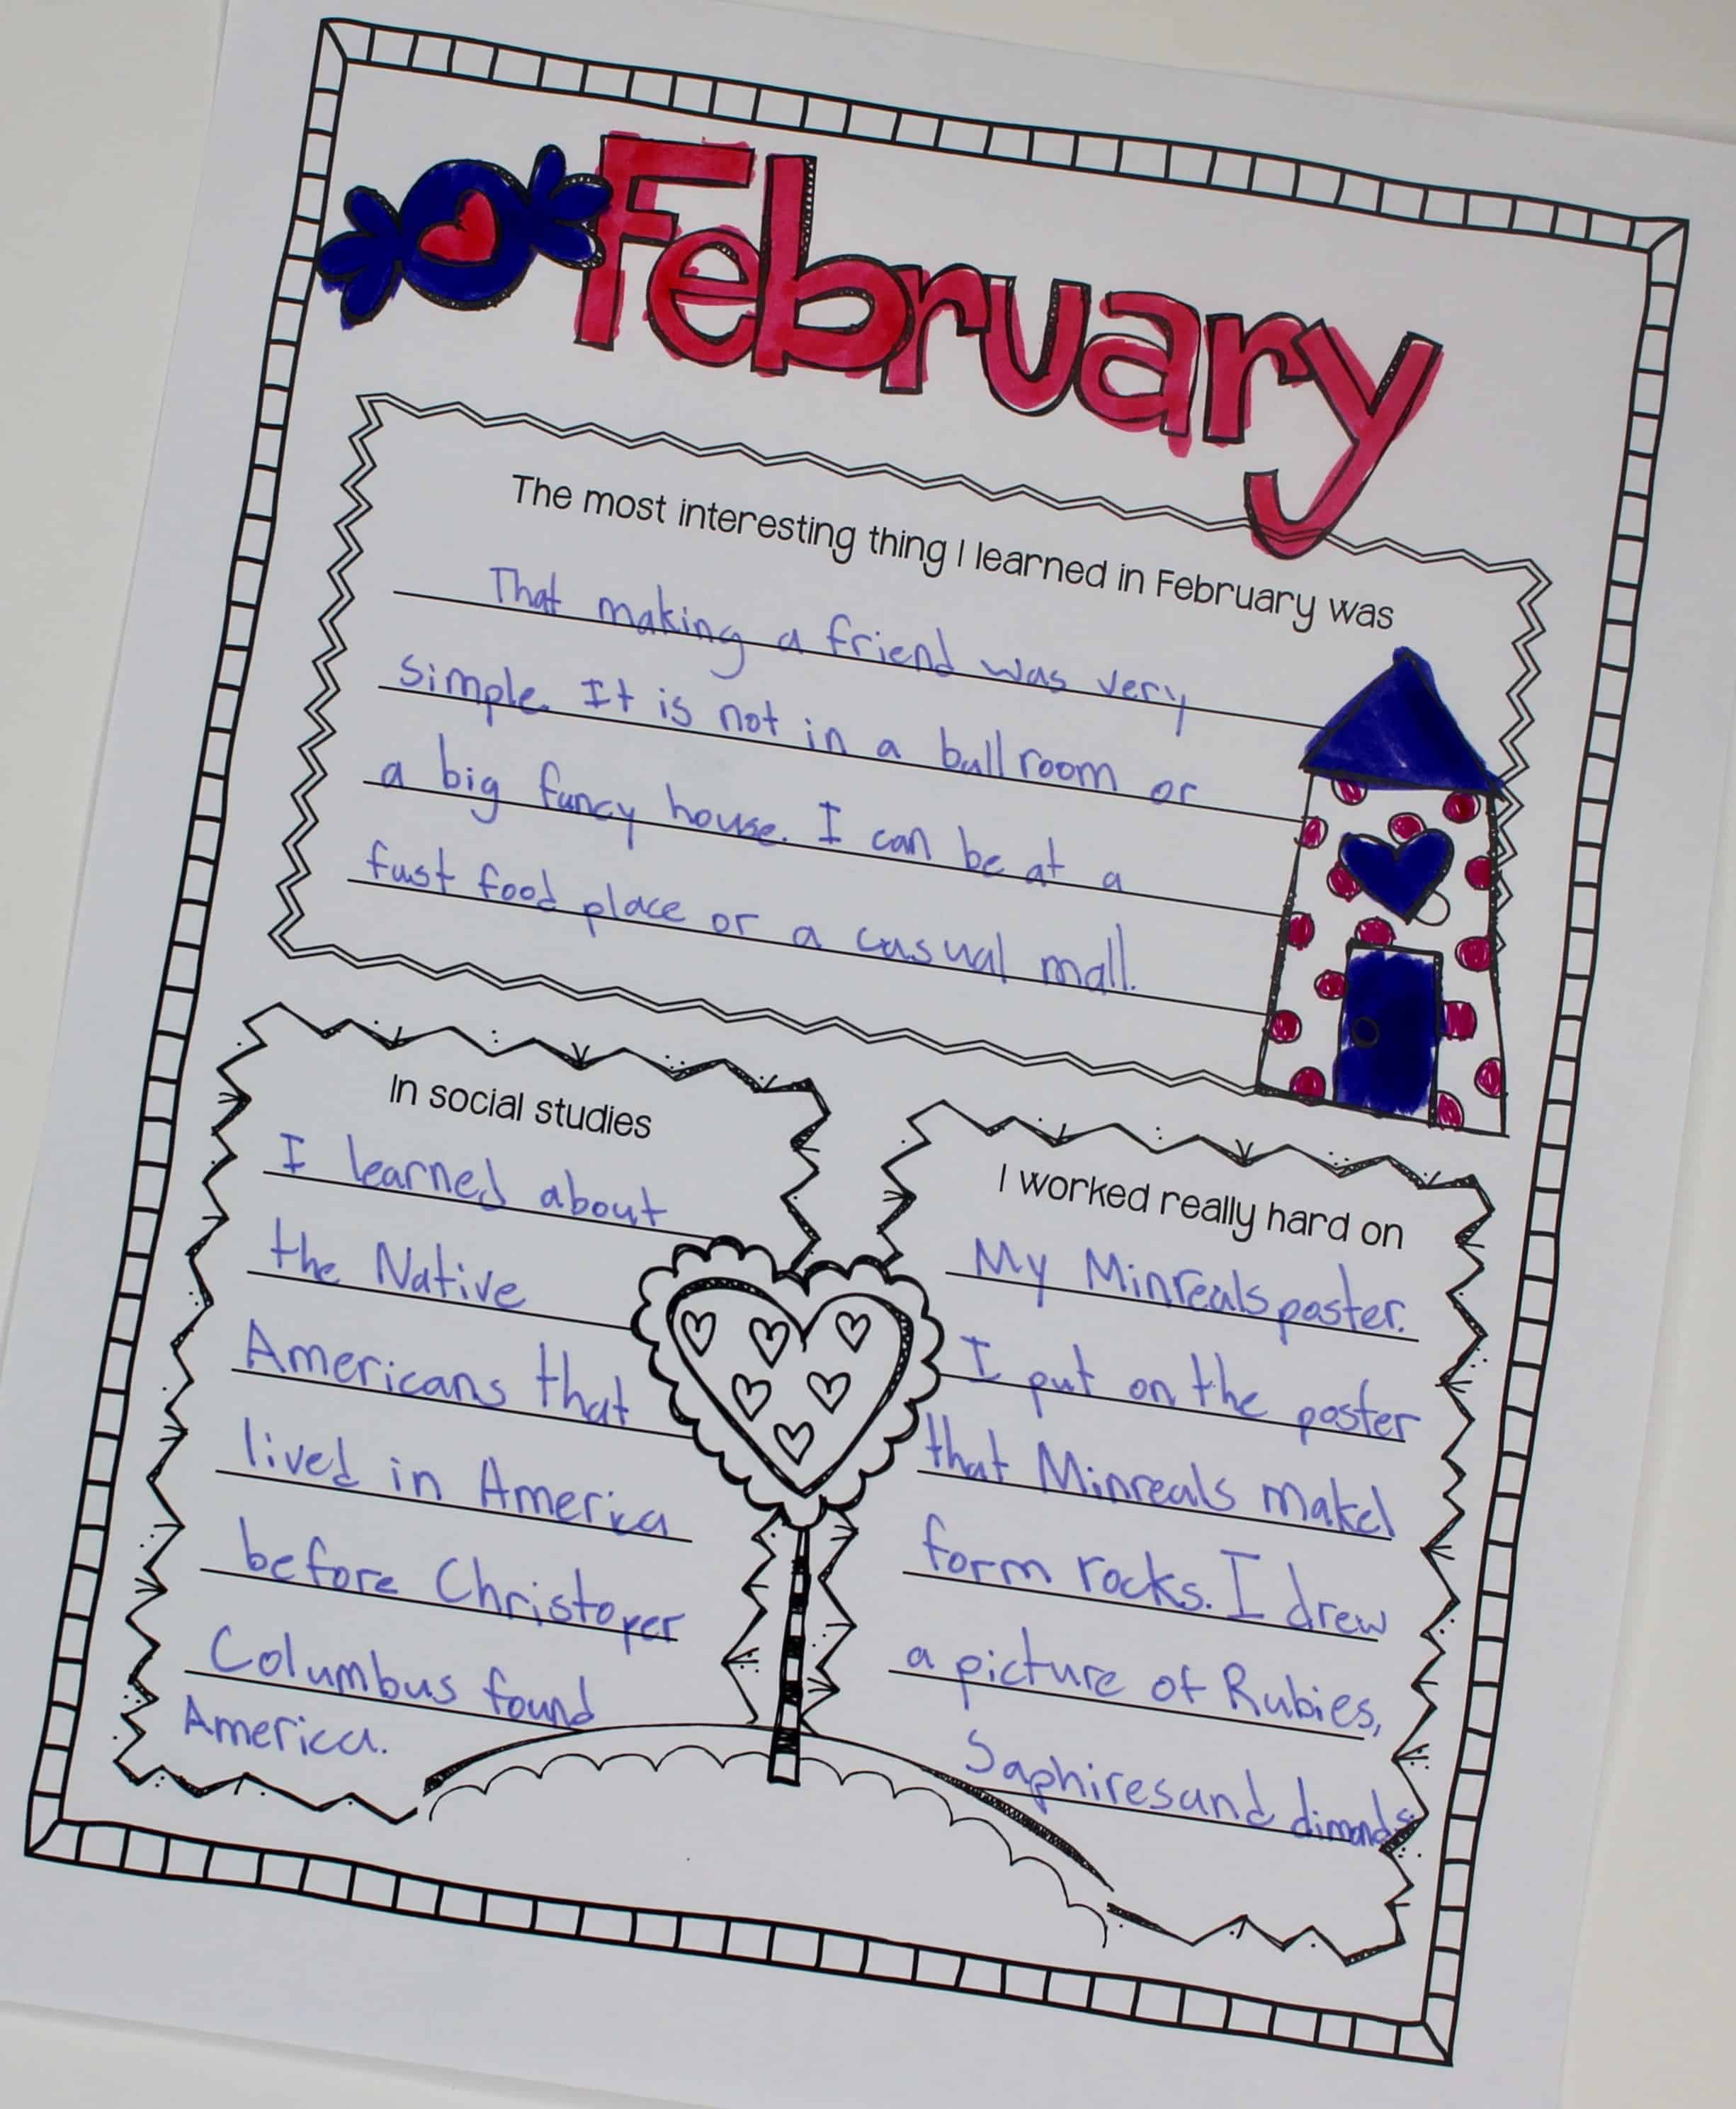 February
The most interesting thing I learned in February was
That making a friend was very
simple. It is not in a ballroom or
a big fancy house. I can be at a
fast food place or a casual mall.
In social studies
I learned about
the Native
Americans that
lived in America
before Christoper
Columbus found
America.
I worked really hard on
My Minreals poster.
I put on the poster
that Minreals makel
form rocks. I drew
a picture of Rubies,
Saphires and dimonds